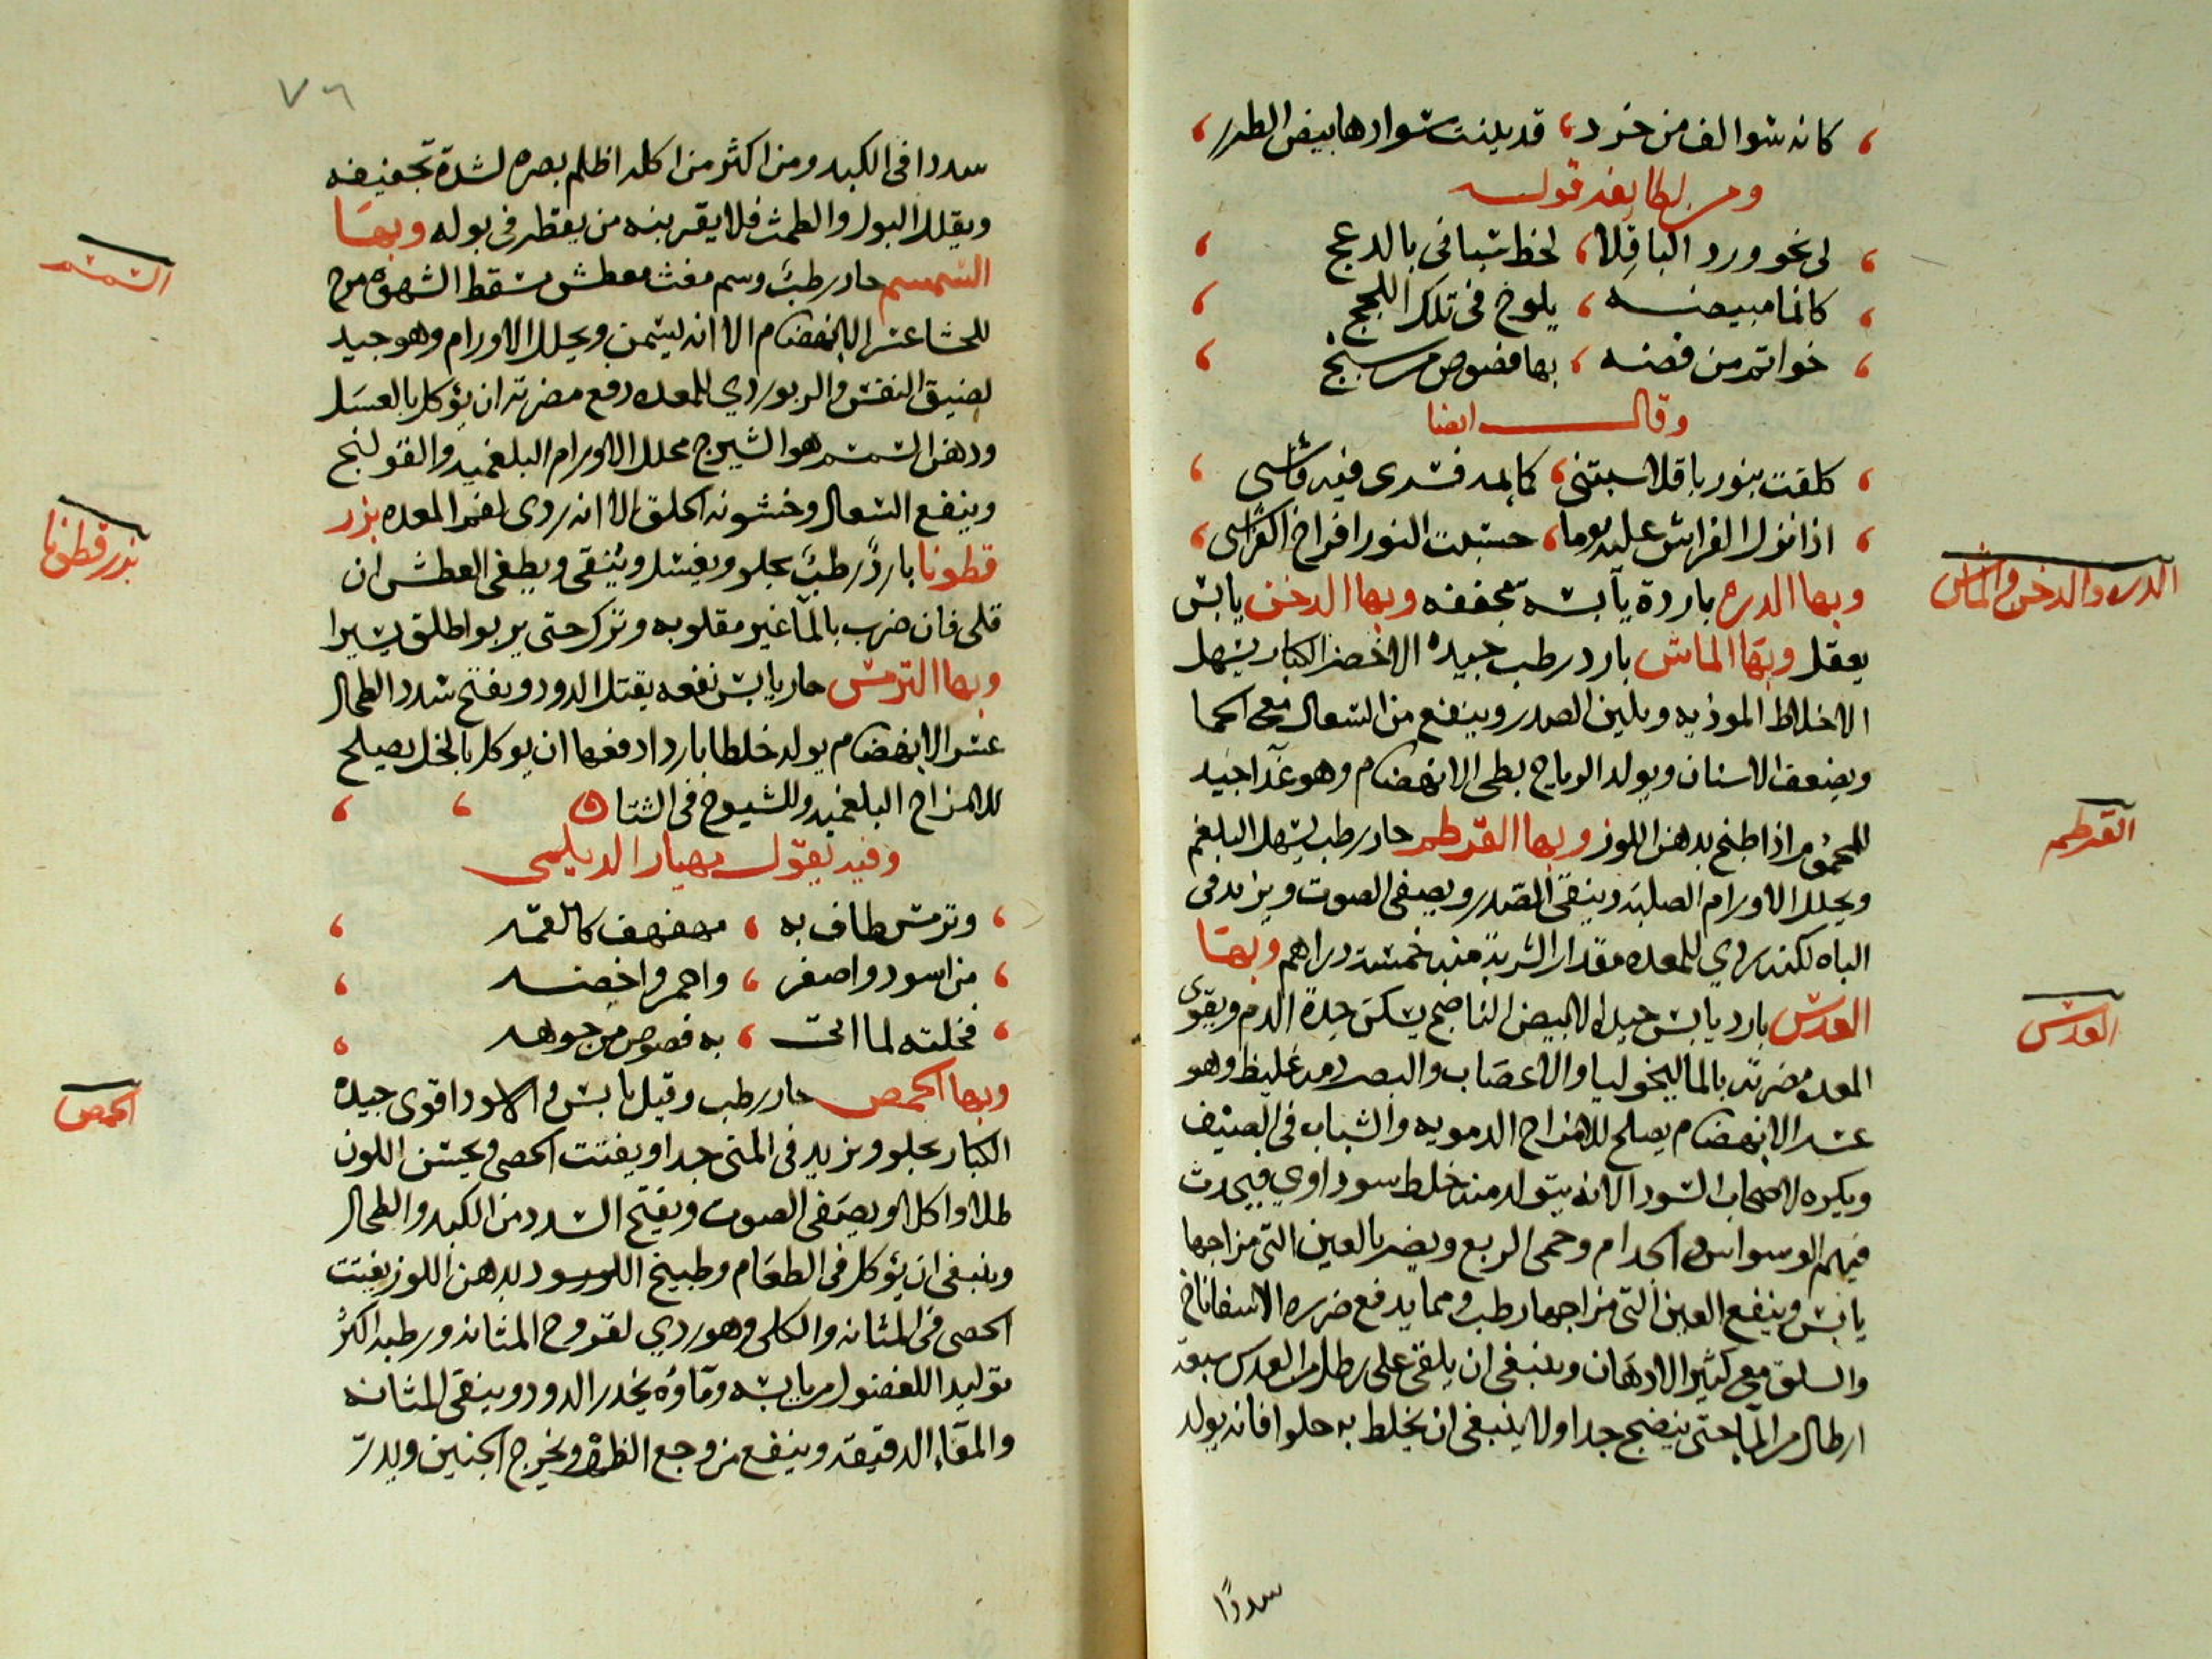 كانه شوالف من خرد، قد بلنت شوادها بيض الطرر
ومن لطايفه قوله
لى نحو ورد الباقلا، لحظ شبا فى بالدعج
كانما مبيضه، يلوح فى تلك اللجج
خواتم من فضه، بها فصوص من سبج
وقال ايضا
كلفت بنور باقلا سبتنى، كمايمه فسرى فيه فاشى
اذا نزل الفراش عليه يوما، حسبت النور افراخ الفراش
وبها الدره باردة يابسه مجففه وبها الدخن يابس
يعقل وبها الماش بارد رطب جيده الاخضر الكبار يسهل
الاخلاط الموذيه ويلين الصدر وينفع من السعال مع الحما
ويضعف الاسنان ويولد الرياح بطى الانهضام وهو غدا جيد
للمحموم اذا طبخ بدهن اللوز وبها القرطم حار رطب يسهل البلغم
ويحلل الاورام الصلبه وينقى الصدر ويصفى الصوت ويزيد فى
الباه لكنه ردي للمعده مقدار الشربة منه خمسة دراهم وبها
العدس بارد يابس جيده الابيض الناضج يسكن حدة الدم ويقوى
المعده مضرته بالماليخوليا والاعصاب والبصر دمه غليظ وهو
عسر الانهضام يصلح للامزاج الدمويه والشباب فى الصيف
ويكره لاصحاب السودا لانه يتولد منه خلط سوداوي فيحدث
فيهم الوسواس والجدام وحمى الربع ويضر بالعين التى مزاجها
يابس وينفع العين التى مزاجها رطب ومما يدفع ضرره الاسفاناخ
والسلق مع كثير الادهان وينبغى ان يلقى على رطل من العدس سبعة
ارطال من الما حتى ينضج جدا ولا ينبغى ان يخلط به حلوا فانه يولد
سددًا
الدره والدخن والماش
القرطم
العدس
٧٦
سددا فى الكبد ومن اكثر من اكله اظلم بصره لشدة تجفيفه
ويقلل البول والطمث فلا يقربنه من يقطر فى بوله وبها
السمسم حار رطب وسم مغث معطش مسقط الشهوه مرخ
للحشا عسر الانهضام الا انه يسمن ويحلل الاورام وهو جيد
لضيق النفس والربو ردي للمعده دفع مضرته ان يؤكل بالعسل
ودهن السمسم هو الشيرج محلل الاورام البلغميه والقولنج
وينفع السعال وخشونه الحلق الا انه ردى لفم المعده بزر
قطونا بارد رطب يجلو ويغسل وينقى ويطفى العطش ان
قلى فان ضرب بالما غير مقلوبه وترك حتى يربو اطلق يسيرا
وبها الترمس حار يابس نفعه يقتل الدود ويفتح سدد الطحال
عسر الانهضام يولد خلطا باردا دفعها ان يوكل بالخل يصلح
للامزاج البلغميه وللشيوخ فى الشتا
وفيه يقول مهيار الديلمى
وترمس طاف به، مهفهف كالقمه
من اسود واصفر، واحمر واخضه
فخلته لما اتى، به فصوص من جوهه
وبها الحمص حار رطب وقيل يابس والاسود اقوى جيده
الكبار يجلو ويزيد فى المنى جدا ويفتت الحصى ويحسن اللون
طلا واكلا ويصفى الصوت ويفتح السدد من الكبد والطحال
وينبغى ان يؤكل فى الطعام وطبيخ الاسود بدهن اللوز يفتت
الحصى فى المثانه والكلى وهو ردي لقروح المثانه ورطبه اكثر
توليدا للفضول من يابسه وماؤه يخدر الدود وينقى المثانه
والمقاء الدقيقه وينفع من وجع الظهر ويخرج الجنين ويدر
السمسم
بزر قطونا
الحمص